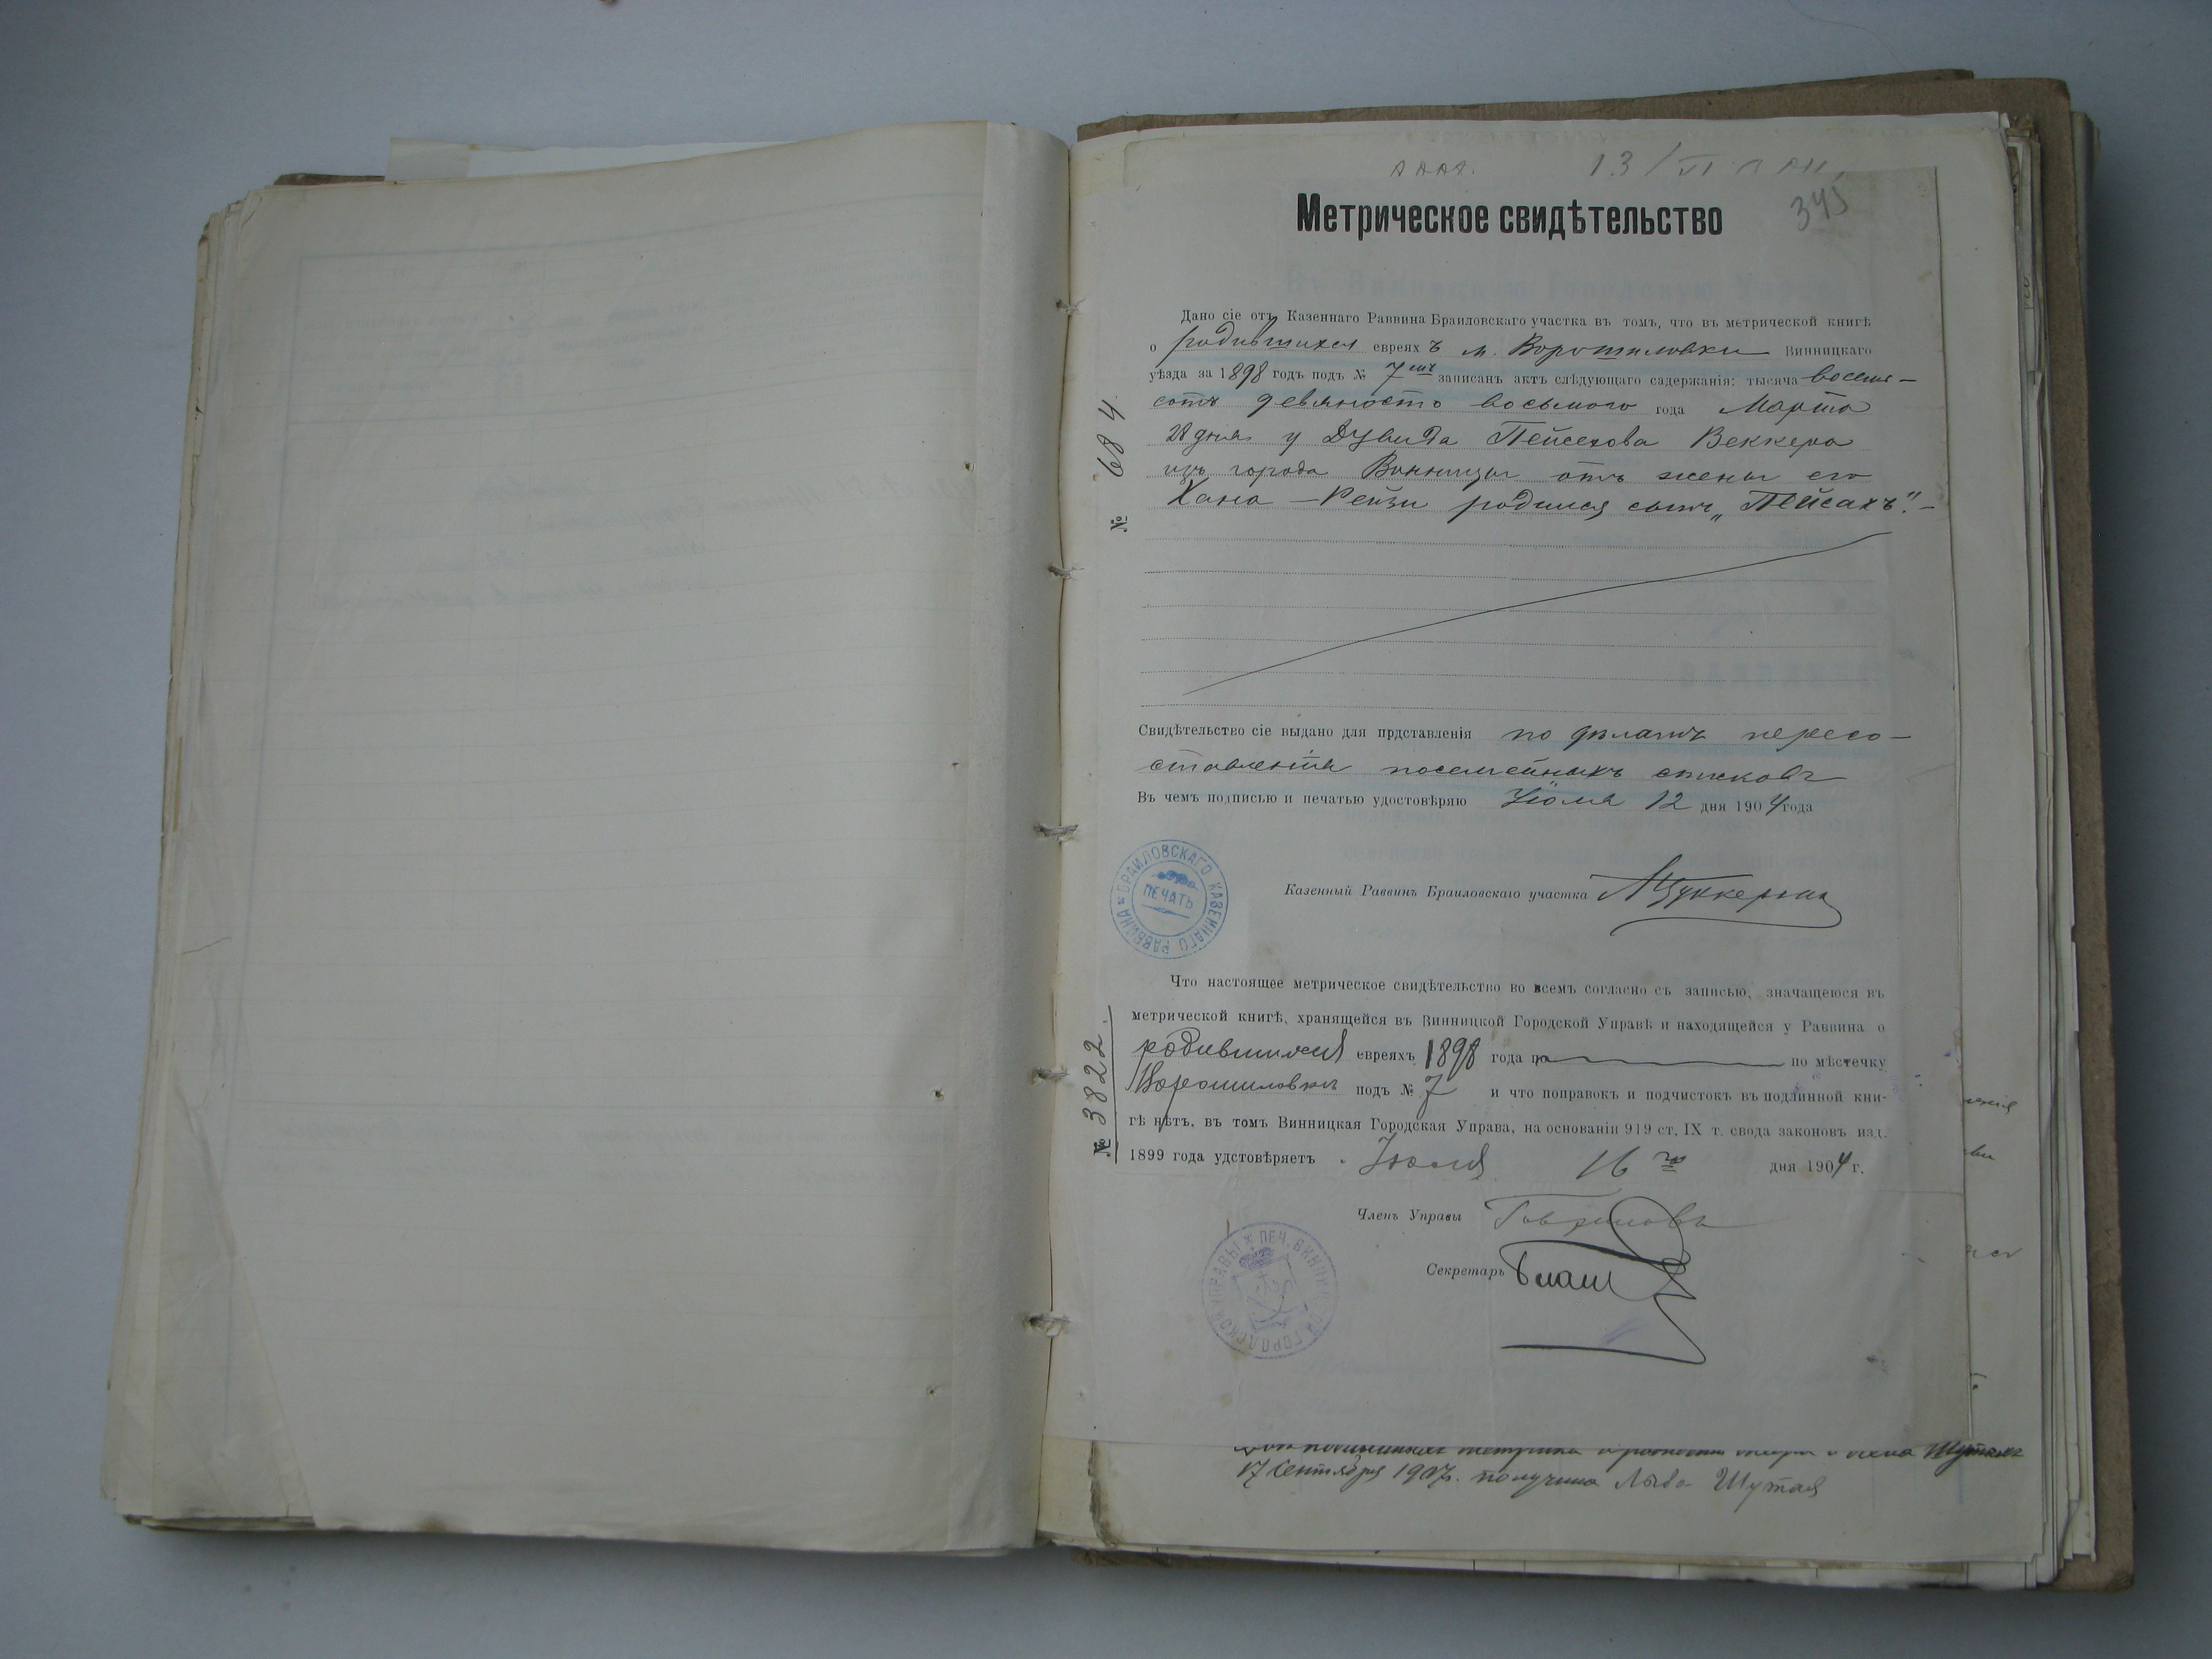 345
Метрическое свидѣтельство
№ 684.
Дано сіе отъ Казеннаго Раввина Браиловскаго участка въ томъ, что въ метрической книгѣ
о родившихся евреяхъ м. Ворошиловки Винницкаго
уѣзда за 1898 годъ подъ № 7мъ записанъ актъ слѣдующаго содержанія: тысяча восемь-
сотъ девяносто восьмого года Марта
28 дня у Дувида Пейсахова Веккера
изъ города Винницы отъ жены его
Хана-Рейзи родился сынъ „Пейсахъ".-
Свидѣтельство сіе выдано для прдставленія по дѣламъ пересо-
ставленія посемейныхъ списковъ
Въ чемъ подписью и печатью удостовѣряю Іюля 12 дня 1904 года
БРАИЛОВСКАГО КАЗЕННАГО РАВВИНА
ПЕЧАТЬ
Казенный Раввинъ Браиловскаго участка МЦуккерман
№ 3822.
Что настоящее метрическое свидѣтельство во всемъ согласно съ записью, значащеюся въ
метрической книгѣ, хранящейся въ Винницкой Городской Управѣ и находящейся у Раввина о
родившихся евреяхъ 1898 года по по мѣстечку
Ворошиловкѣ подъ № 7 и что поправокъ и подчистокъ въ подлинной кни-
гѣ нѣтъ, въ томъ Винницкая Городская Управа, на основаніи 919 ст. IX т. свода законовъ изд.
1899 года удстовѣряетъ Іюля 16 го дня 1904 г.
Членъ Управы
Секретарь
ПЕЧ. ВИННИЦКОЙ ГОРОДСКОЙ УПРАВЫ
17 Сентября 1907. получила Лыба Шутая